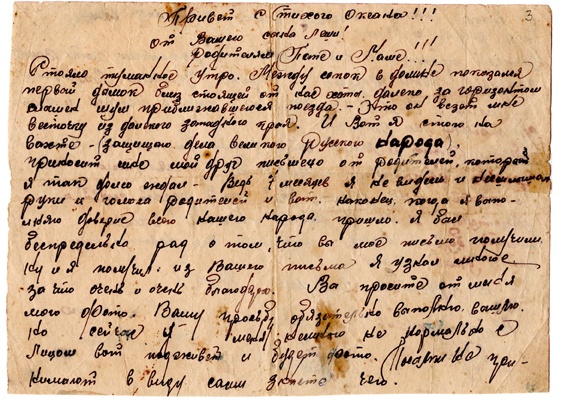 Привет с тихого Океана!!! 3
От Вашего сына Лёни!
Родителям Пете и Маше!!!
Стояло туманное утро. Между сопок в домике показался
первой дымок близ стоящей от нас хата, далеко за горизонтом
слышен шум приближающегося поезда. - Это он везет мне
весточку из далекого западного края. И Вот я стою на
вахте - защищаю дела великого Русского народа,
приносит мне мой друг письмецо от родителей, которых
я так долго ждал - Ведь 7 месяцев я не видел и не слышал
руки и голоса родителей и вот, наконец, когда я выпо-
лняю доверие всего нашего народа, пришло. Я был
беспредельно рад о том, что вы моё письмо получили,
ну и я получил. из Вашего письма я узнал многое
за что очень и очень благодарю. Вы просите от меня
моего фото. Вашу просьбу обязательно выполню, вышлю.
но сейчас я немного не нормально с
Лицом вот подживет и будет фото. Матрики не при-
нимают в виду сами знаете чего.